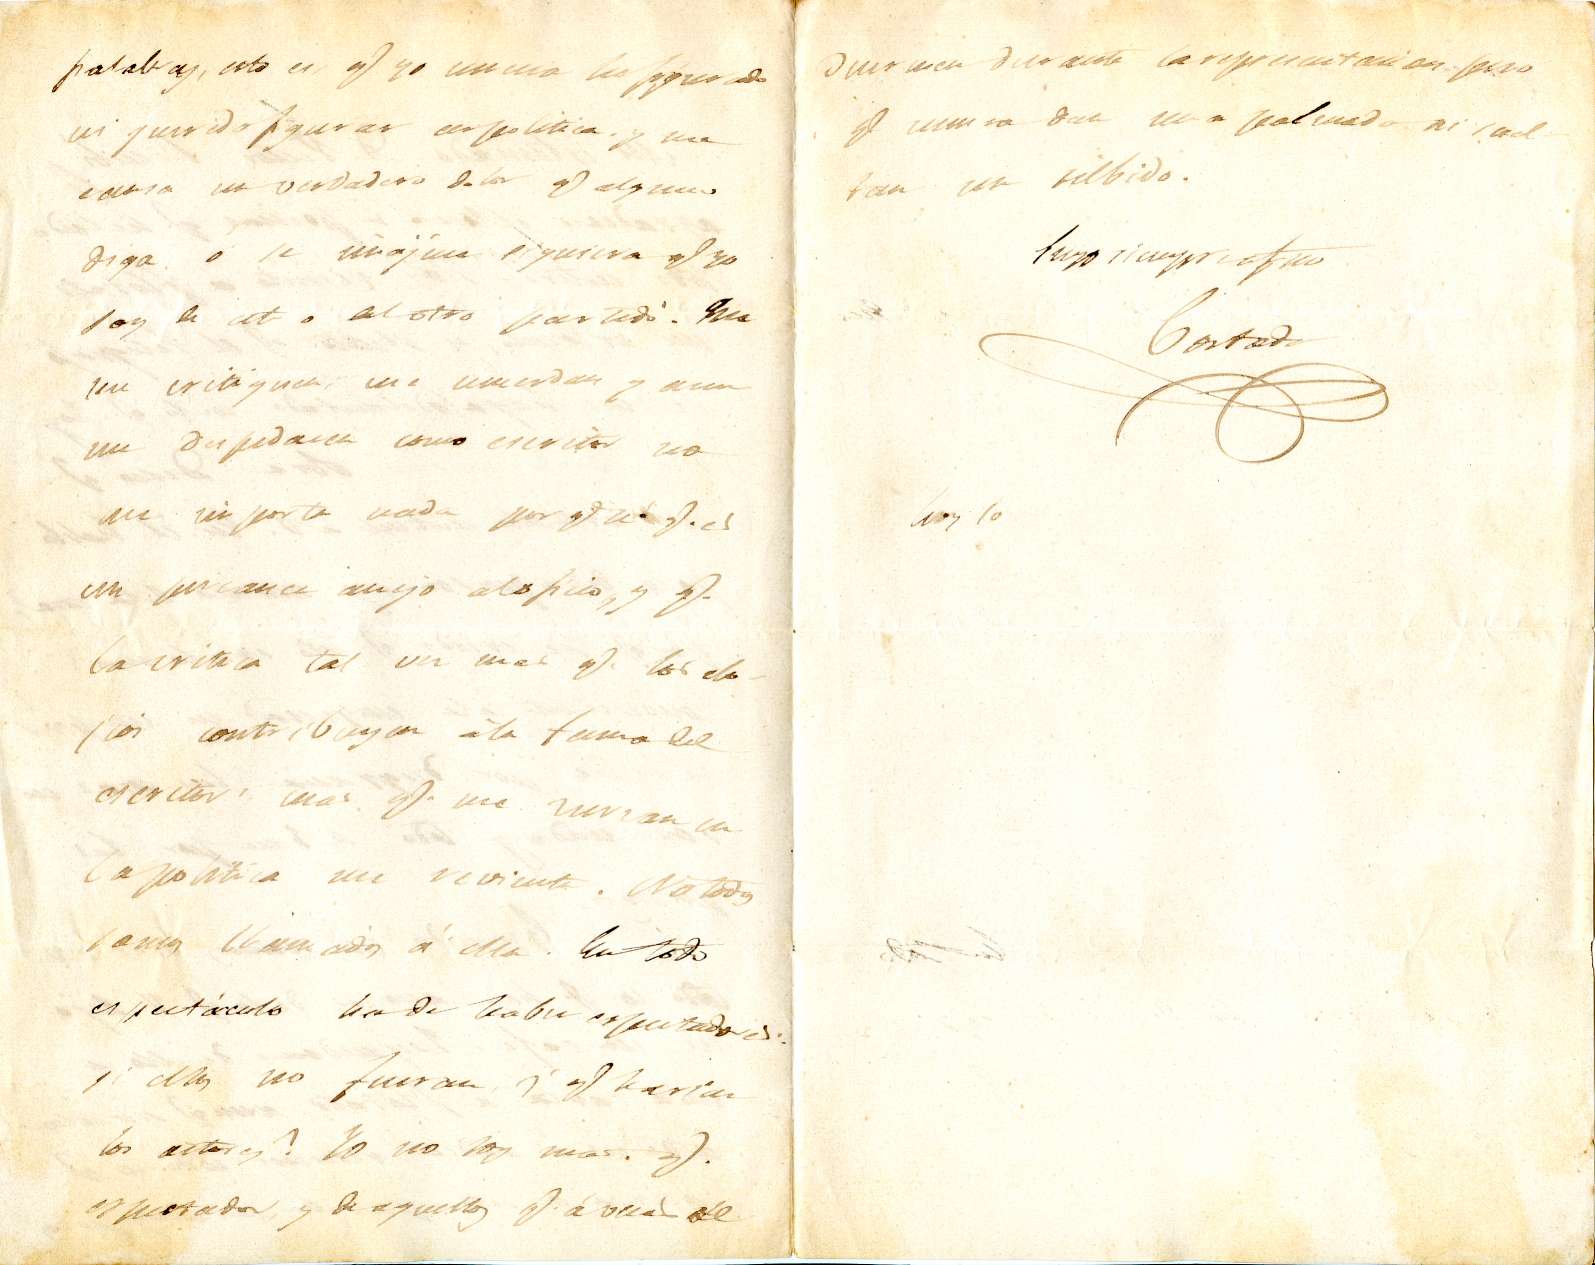 palabras, esto es, qe yo nunca he figurado
ni querido figurar en política, y me
causa un verdadero dolor qe alguno
diga o se imájine siquiera qe yo
soy de este o del otro partido. Que
me critiquen, me muerdan y aun
me despedacen como escritor no
me importa nada porqe sé qe es
un percance anejo al oficio, y qe
la critica tal vez mas qe los elo-
jios contribuyen á la fama del
escritor; mas qe me zurzan en
la política me revienta. No todos
somos llamados á ella. En todo
espectáculo ha de haber espectadores:
si ellos no fueran, ¿qe harian
los actores? Yo no soy mas qe
espectador, y de aquellos qe á veces se
duermen durante la representacion pero
qe nunca dan una palmada ni suel-
tan un silbido.
Suyo siempre afmo
Cortada
hoy 10